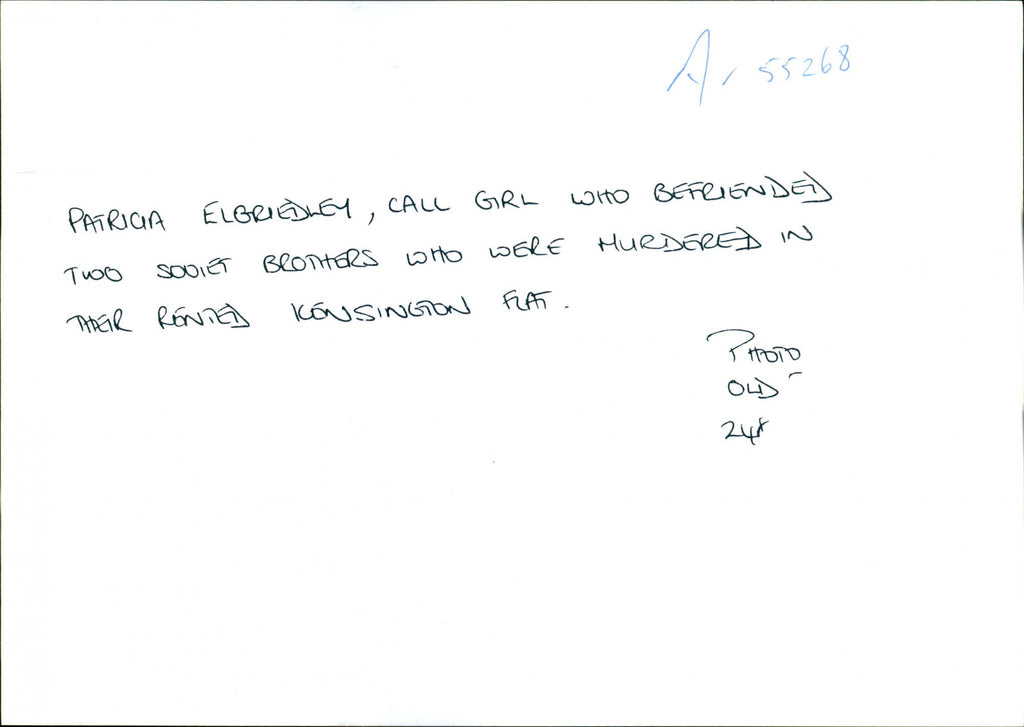 A, 55268
PATRICIA ELBRIEDLEY, CALL GIRL WHO BEFRIENDED
TWO SOVIET BROTHERS WHO WERE MURDERED IN
THEIR RENTED KENSINGTON FLAT.
PHOTO
OLD